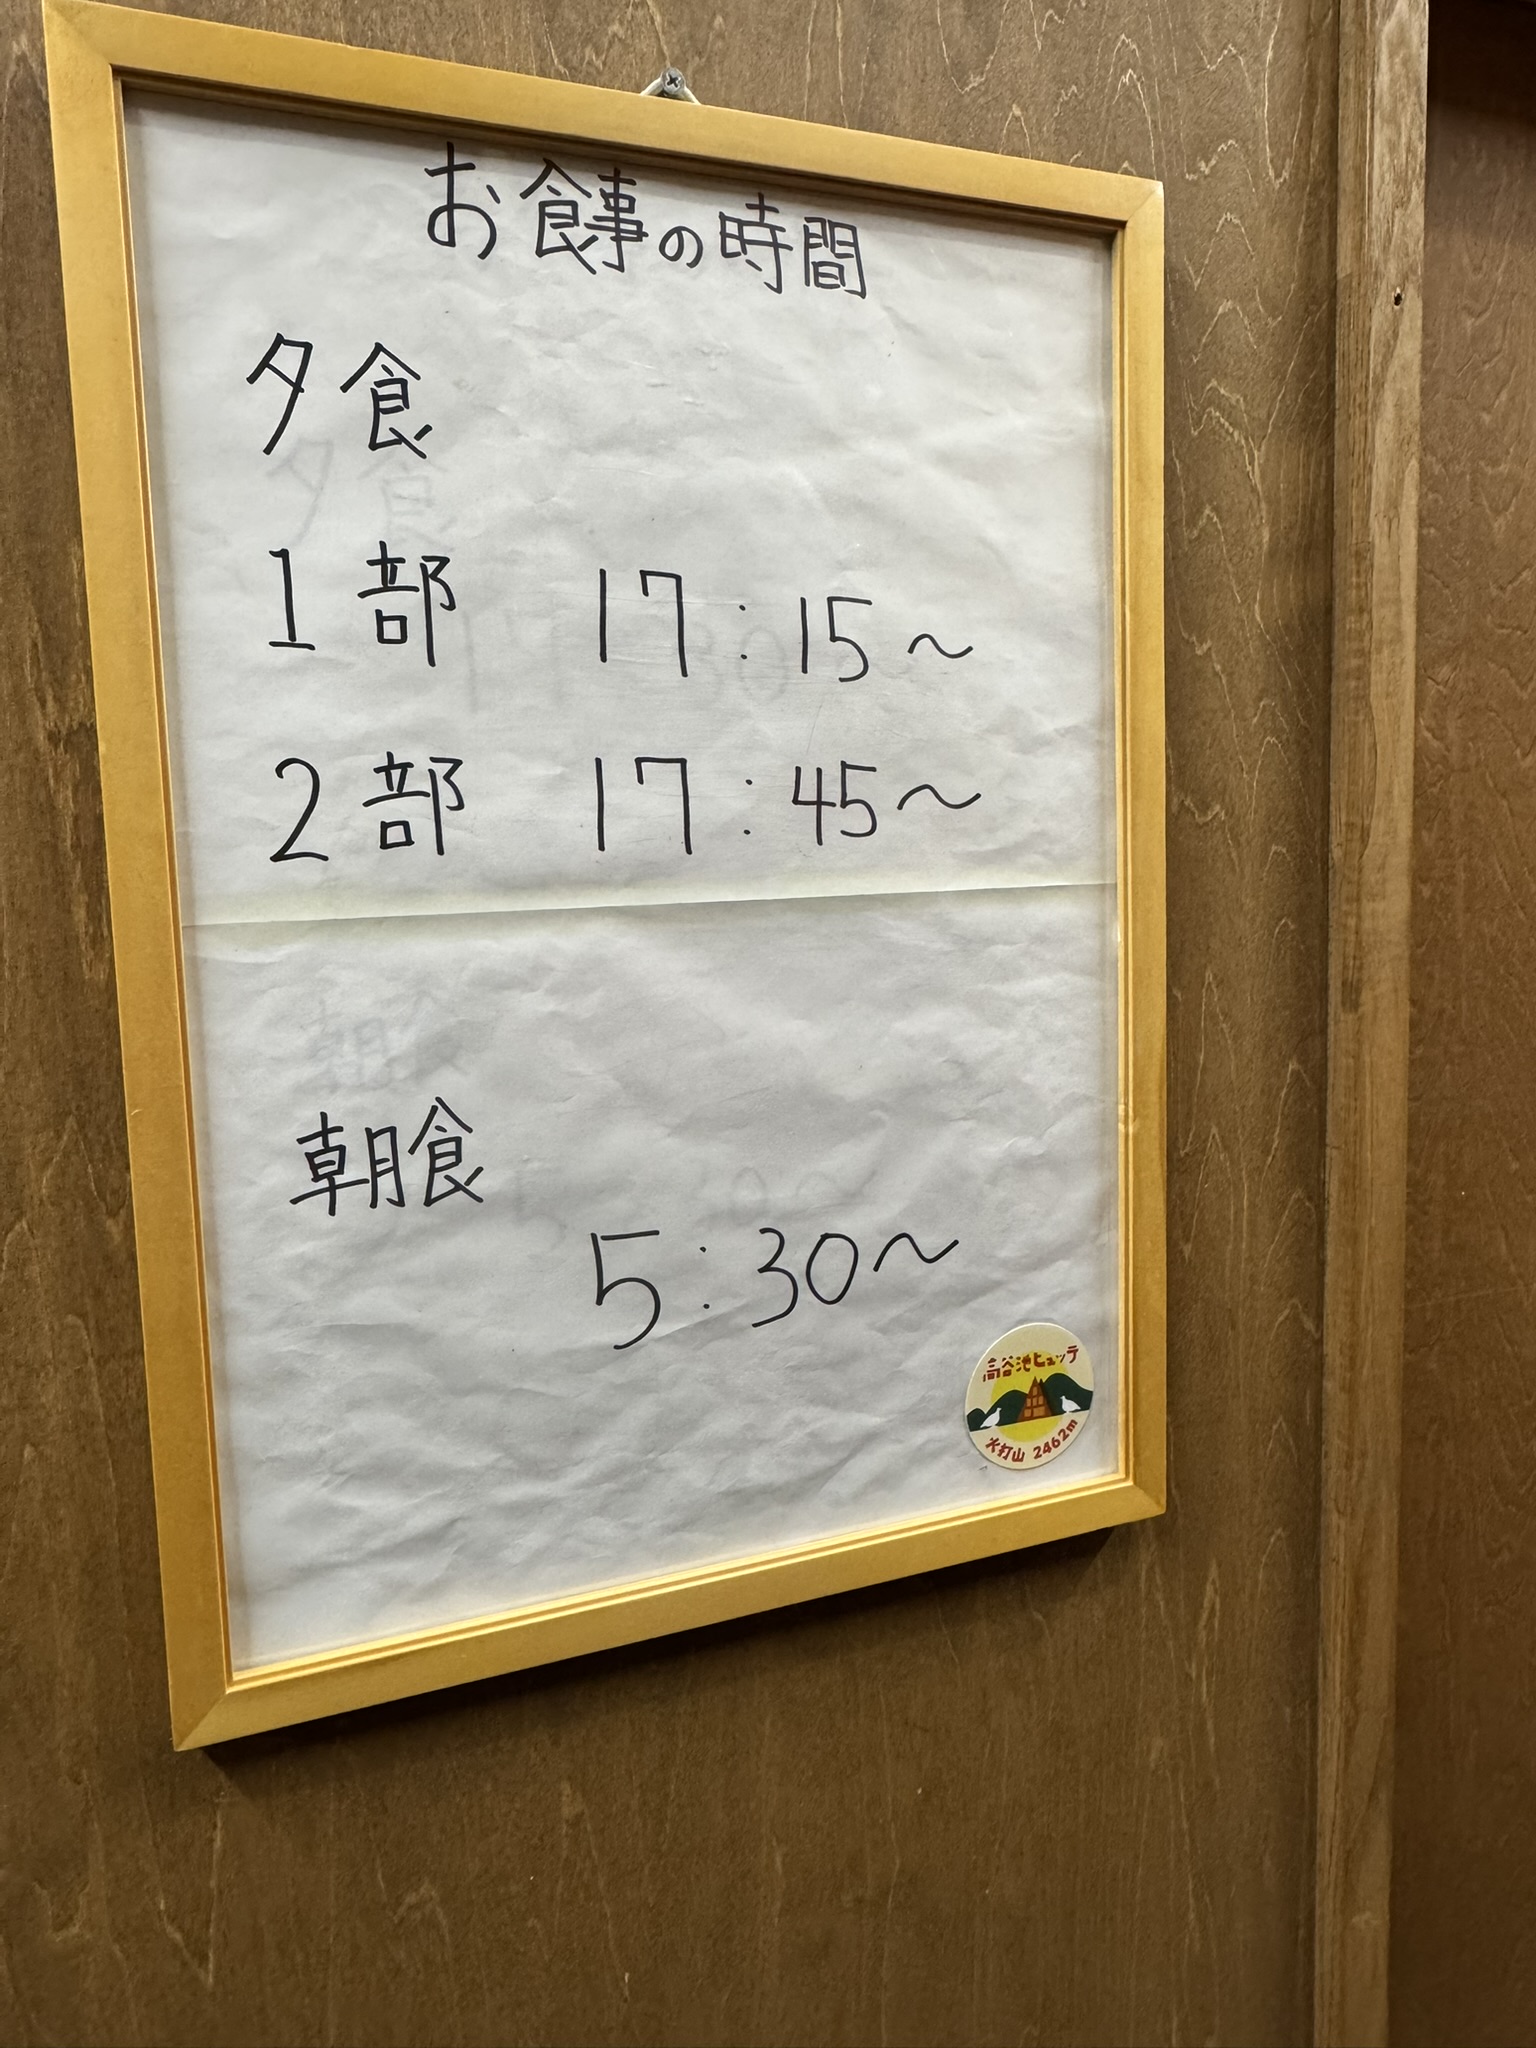 お食事の時間
夕食
1部 17:15〜
2部 17:45〜
朝食
5:30〜
高谷池ヒュッテ
火打山 2462m